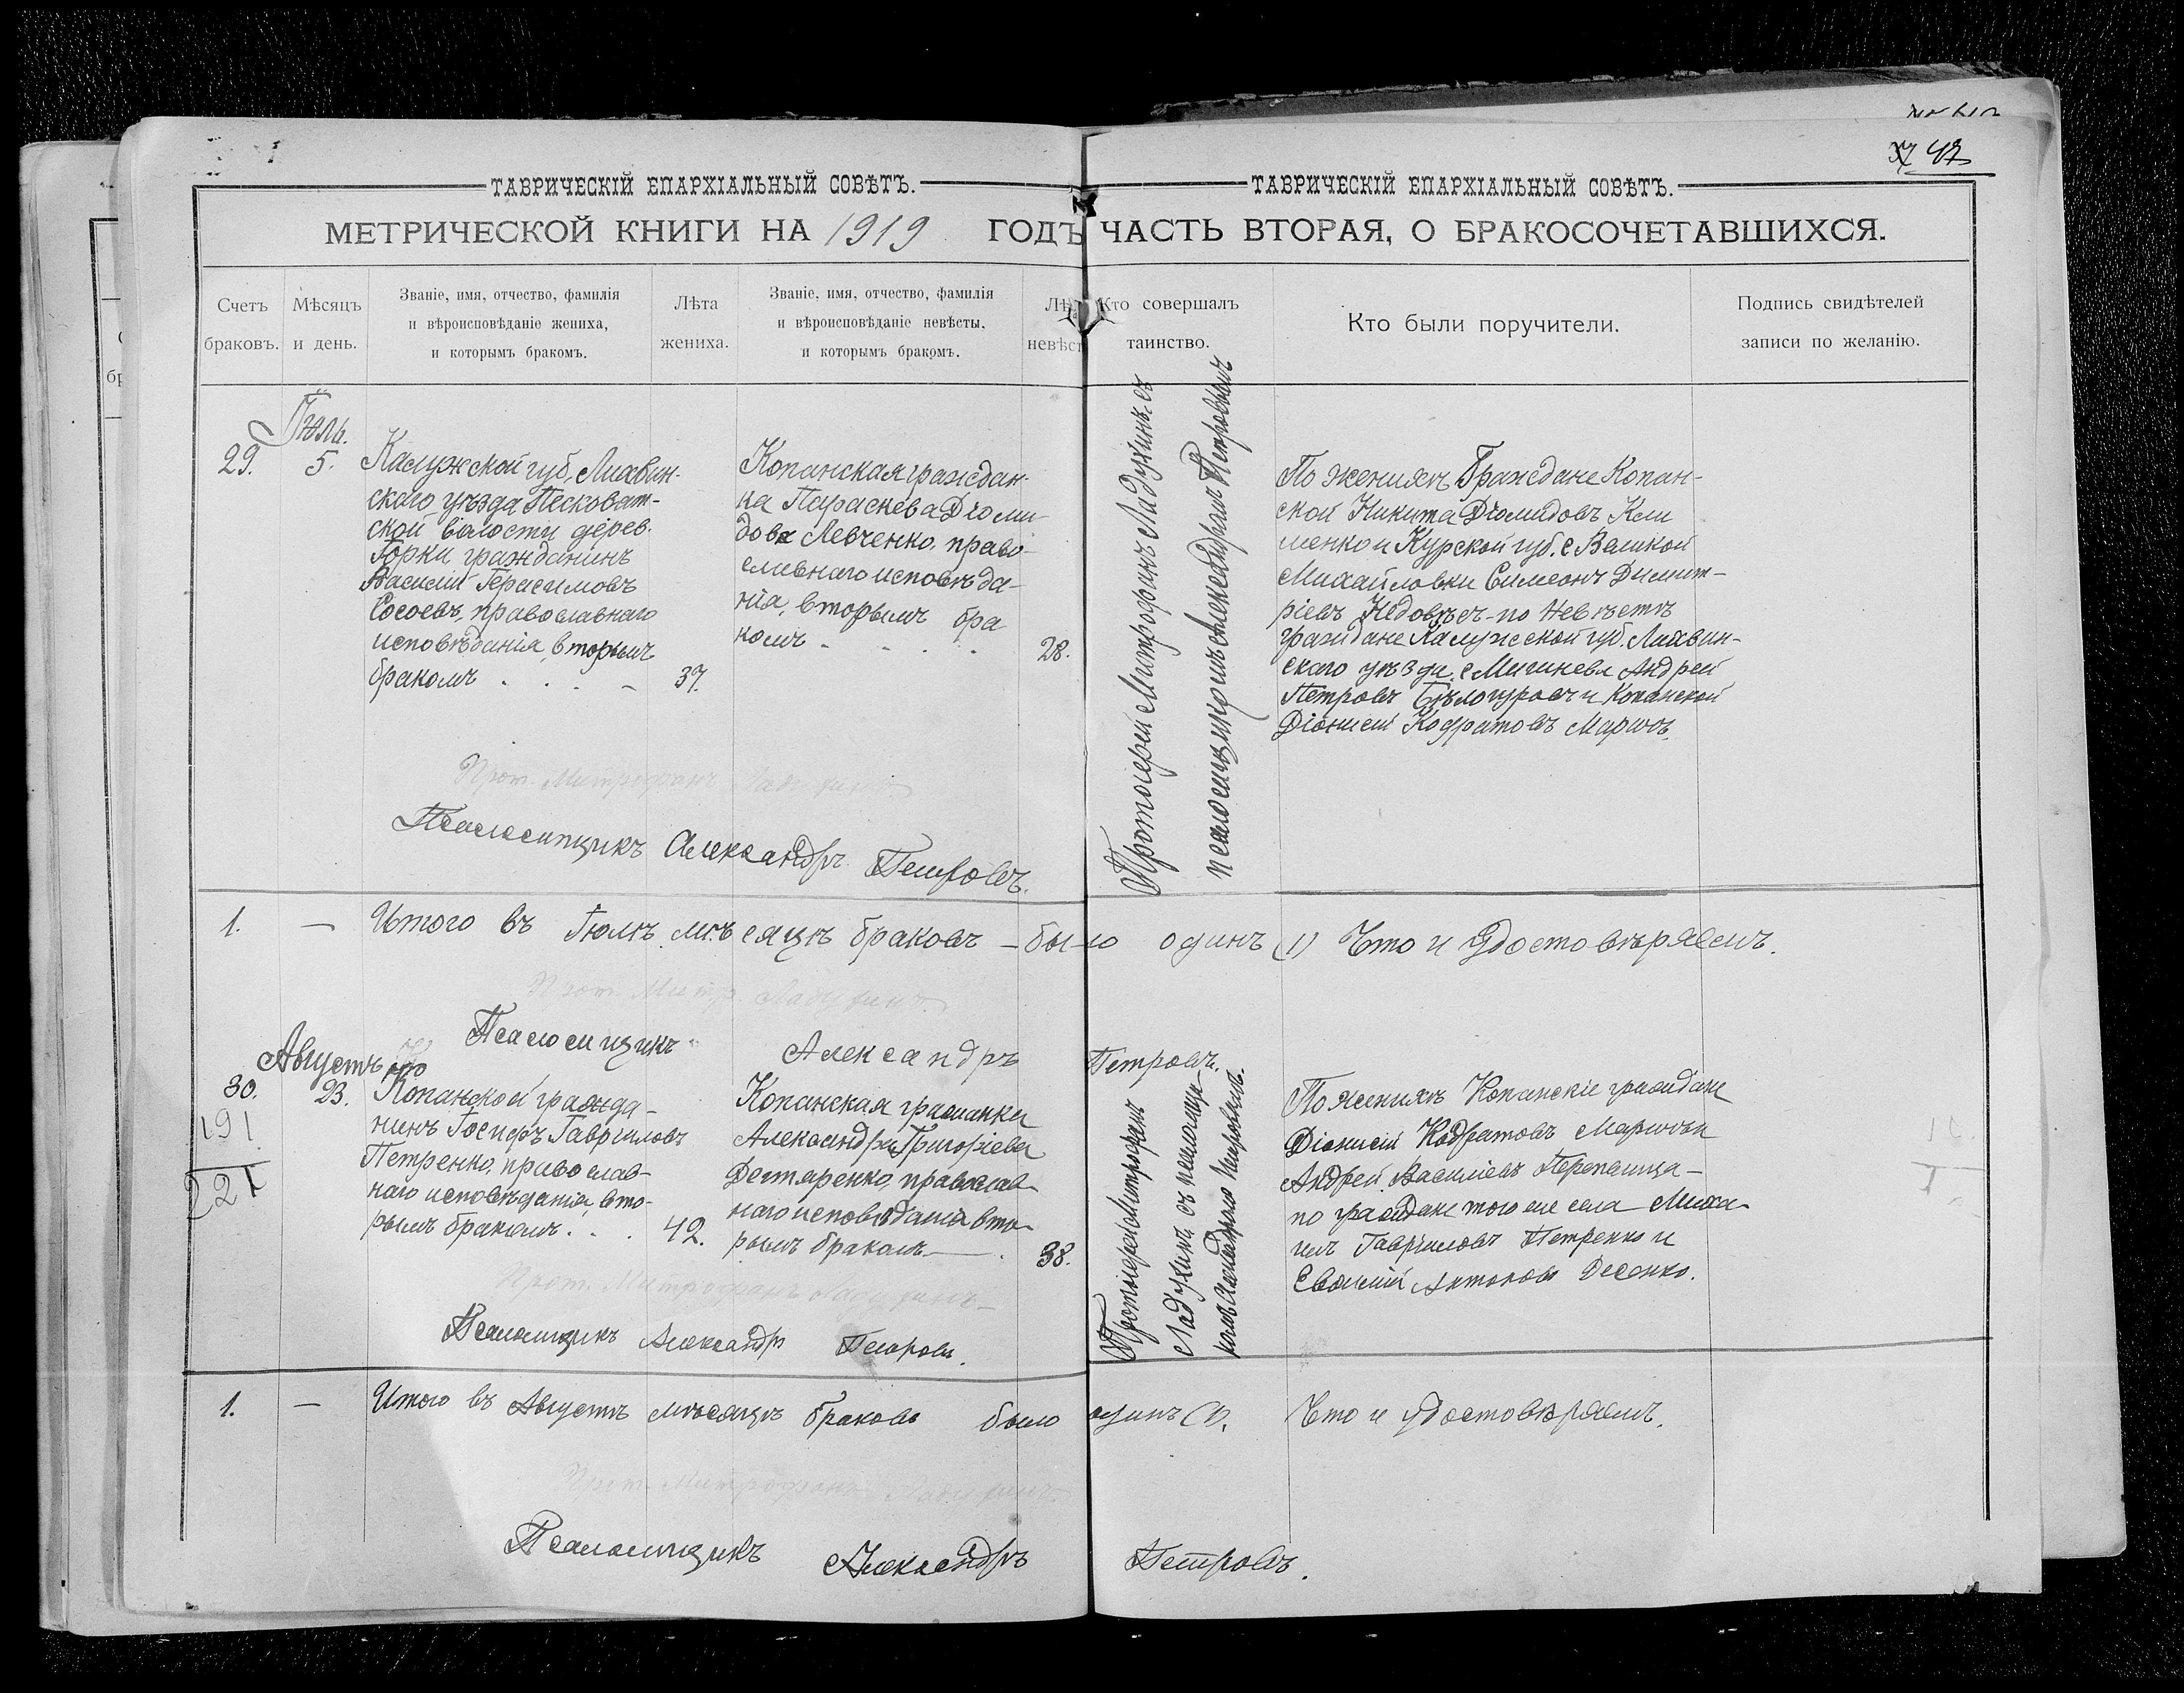 42
ТАВРИЧЕСКІЙ ЕПАРХІАЛЬНЫЙ СОВѢТЪ.
ТАВРИЧЕСКІЙ ЕПАРХІАЛЬНЫЙ СОВѢТЪ.
МЕТРИЧЕСКОЙ КНИГИ НА 1919 ГОДЪ ЧАСТЬ ВТОРАЯ, О БРАКОСОЧЕТАВШИХСЯ.
Счетъ
браковъ.
Мѣсяцъ
и день.
Званіе, имя, отчество, фамилія
и вѣроисповѣданіе жениха,
и которымъ бракомъ.
Лѣта
жениха.
Званіе, имя, отчество, фамилія
и вѣроисповѣданіе невѣсты,
и которымъ бракомъ.
Лѣ
невѣст
Кто совершалъ
таинство.
Кто были поручители.
Подпись свидѣтелей
записи по желанію.
29.
Іюль.
5.
Калужской губ. Лихвин-
скаго уѣзда Песковат-
ской волости дерев.
Горки гражданинъ
Василій Герасимовъ
православнаго
исповѣданія, вторымъ
бракомъ
37.
Копанская граждан-
ка Параскева Діоми-
дова Левченко, право-
славнаго исповѣда-
нія, вторымъ бра
комъ
28.
Протоіерей Митрофанъ Ладухинъ съ
псаломщикомъ Александромъ Петровымъ
По женихѣ Граждане Копан-
ской Никита Діомидовъ Кли
менко и Курской губ. с Великой
Михайловки Симеонъ Димит-
ріевъ по невѣстѣ
граждане Калужской губ. Лихвин-
скаго уѣзда с Андрей
Петровъ Бѣлогуровъ и Копанской
Діонисій Кодратовъ
Прот. Митрофанъ Ладухинъ
Псаломщикъ Александръ Петровъ.
1. — Итого въ Іюлѣ мѣсяцѣ браковъ – было одинъ (1) Что и удостовѣряемъ.
Прот. Митр. Ладухинъ
Псаломщикъ Александръ Петровъ.
30.
191
221
Августъ
23.
Копанской гражда-
нинъ Іосифъ Гавріиловъ
Петренко, православ-
наго исповѣданія вто-
рымъ бракомъ.
42.
Копанская гражданка
Александра Григоріева
Дегтяренко, православ-
наго исповѣданія вто-
рымъ бракомъ
38.
Протоіерей Митрофанъ
Ладухинъ съ псаломщи-
комъ Александромъ Петровымъ.
По женихѣ Копанскіе граждане
Діонисій Кодратовъ
Андрей Василіевъ Перепелица –
по граждане того же села Миха-
илъ Гавріиловъ Петренко и
Антоновъ
Прот. Митрофанъ Ладухинъ
Псаломщикъ Александръ Петровъ.
1. — Итого въ Августѣ мѣсяцѣ браковъ было одинъ (1). Что и удостовѣряемъ.
Прот. Митрофанъ Ладухинъ
Псаломщикъ Александръ Петровъ.